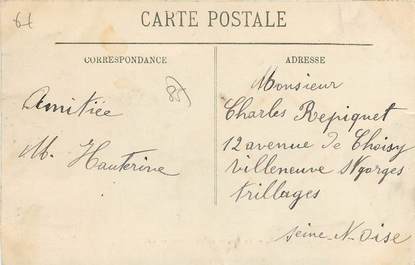 61
CARTE POSTALE
CORRESPONDANCE
ADRESSE
85
Amitiée
M. Hauterive
Monsieur
Charles Repiquet
12 avenue de Choisy
Villeneuve St gorges
trillages
Seine-N-Oise